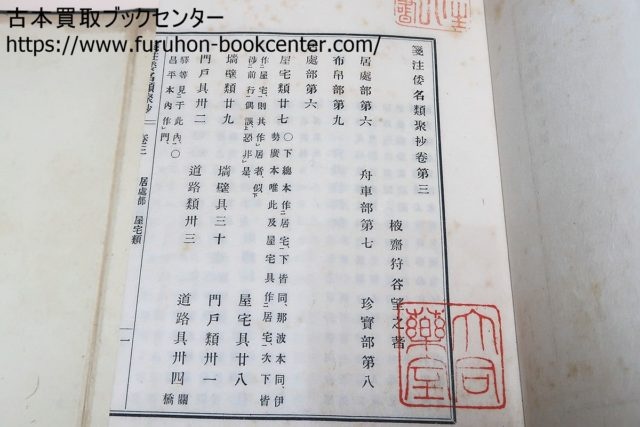 古本買取ブックセンター
https://www.furuhon-bookcenter.com/
箋注倭名類聚抄卷第三
棭齋狩谷望之著
居處部第六 舟車部第七 珍寶部第八
布帛部第九
居處部第六
屋宅類廿七 〇下總本作居宅、下皆同、那波本同、伊勢廣本唯此及屋宅具作居宅、次下皆作屋宅、則其作居者、似下涉前行偶誤恐非是 屋宅具廿八
墻壁類廿九 墻壁具三十 門戶類卅一
門戶具卅二 道路類卅三 道路具卅四 關橋
驛等見于此內、〇昌平本內作門
箋注倭名類聚抄 卷三 居處部 屋宅類 一
大同藥室